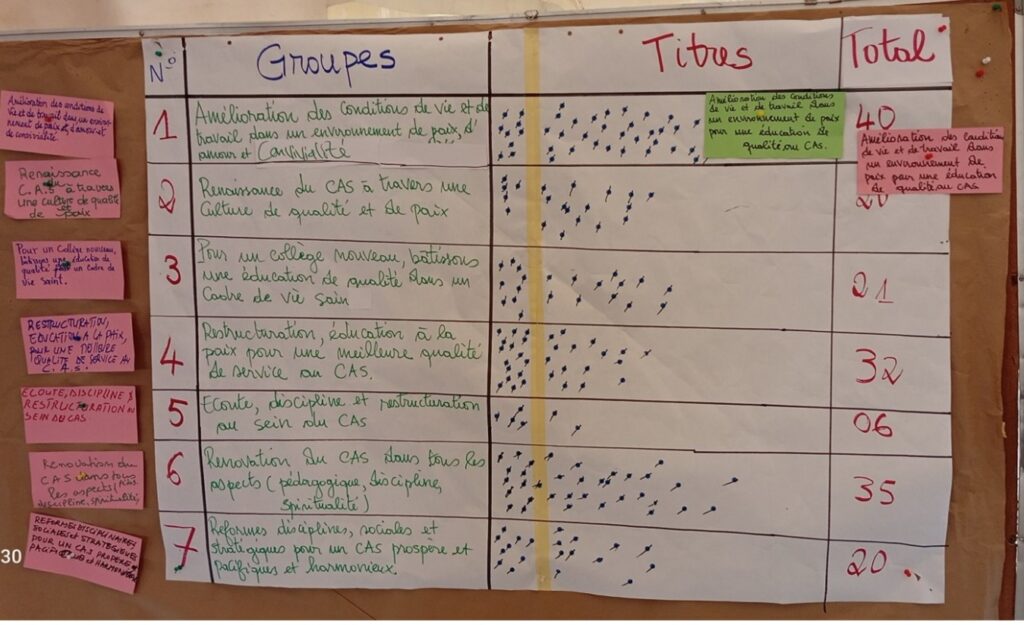 N°
Groupes
Titres
Total
1
Amélioration des conditions de vie et de
travail dans un environnement de paix, d'
amour et Convivialité
40
2
Renaissance du CAS à travers une
Culture de qualité et de paix
3
Pour un collège nouveau, bâtissons
une éducation de qualité dans un
Cadre de vie sain
21
4
Restructuration, éducation à la
paix pour une meilleure qualité
de service au CAS.
32
5
Ecoute, discipline et restructuration
au sein du CAS
06
6
Renovation du CAS dans tous les
aspects (pédagogique, discipline,
spiritualité)
35
7
Réformes disciplines, sociales et
stratégiques pour un CAS prospère et
pacifiques et harmonieux.
20
Amélioration des conditions
de vie et de travail dans
un environnement de paix
pour une éducation de
qualité au CAS.
Amélioration des conditions
de vie et de travail dans
un environnement de
paix pour une éducation
de qualité au CAS
Amélioration des conditions de
vie et de travail dans un environ-
nement de paix, d'amour et
de convivialité
Renaissance du
C.A.S à travers
une culture de qualité
et
de paix
Pour un Collège nouveau,
bâtissons une éducation de
qualité dans un cadre de
vie saint.
RESTRUCTURATION,
EDUCATION A LA PAIX,
POUR UNE MEILLEURE
QUALITE DE SERVICE AU
C.A.S.
ECOUTE, DISCIPLINE &
RESTRUCTURATION AU
SEIN DU CAS
Renovation du
CAS dans tous
les aspects
discipline, spiritualité)
REFORMES DISCIPLINAIRES
SOCIALES et STRATEGIQUES
POUR UN CAS PROSPERE
et HARMONIEUX
30